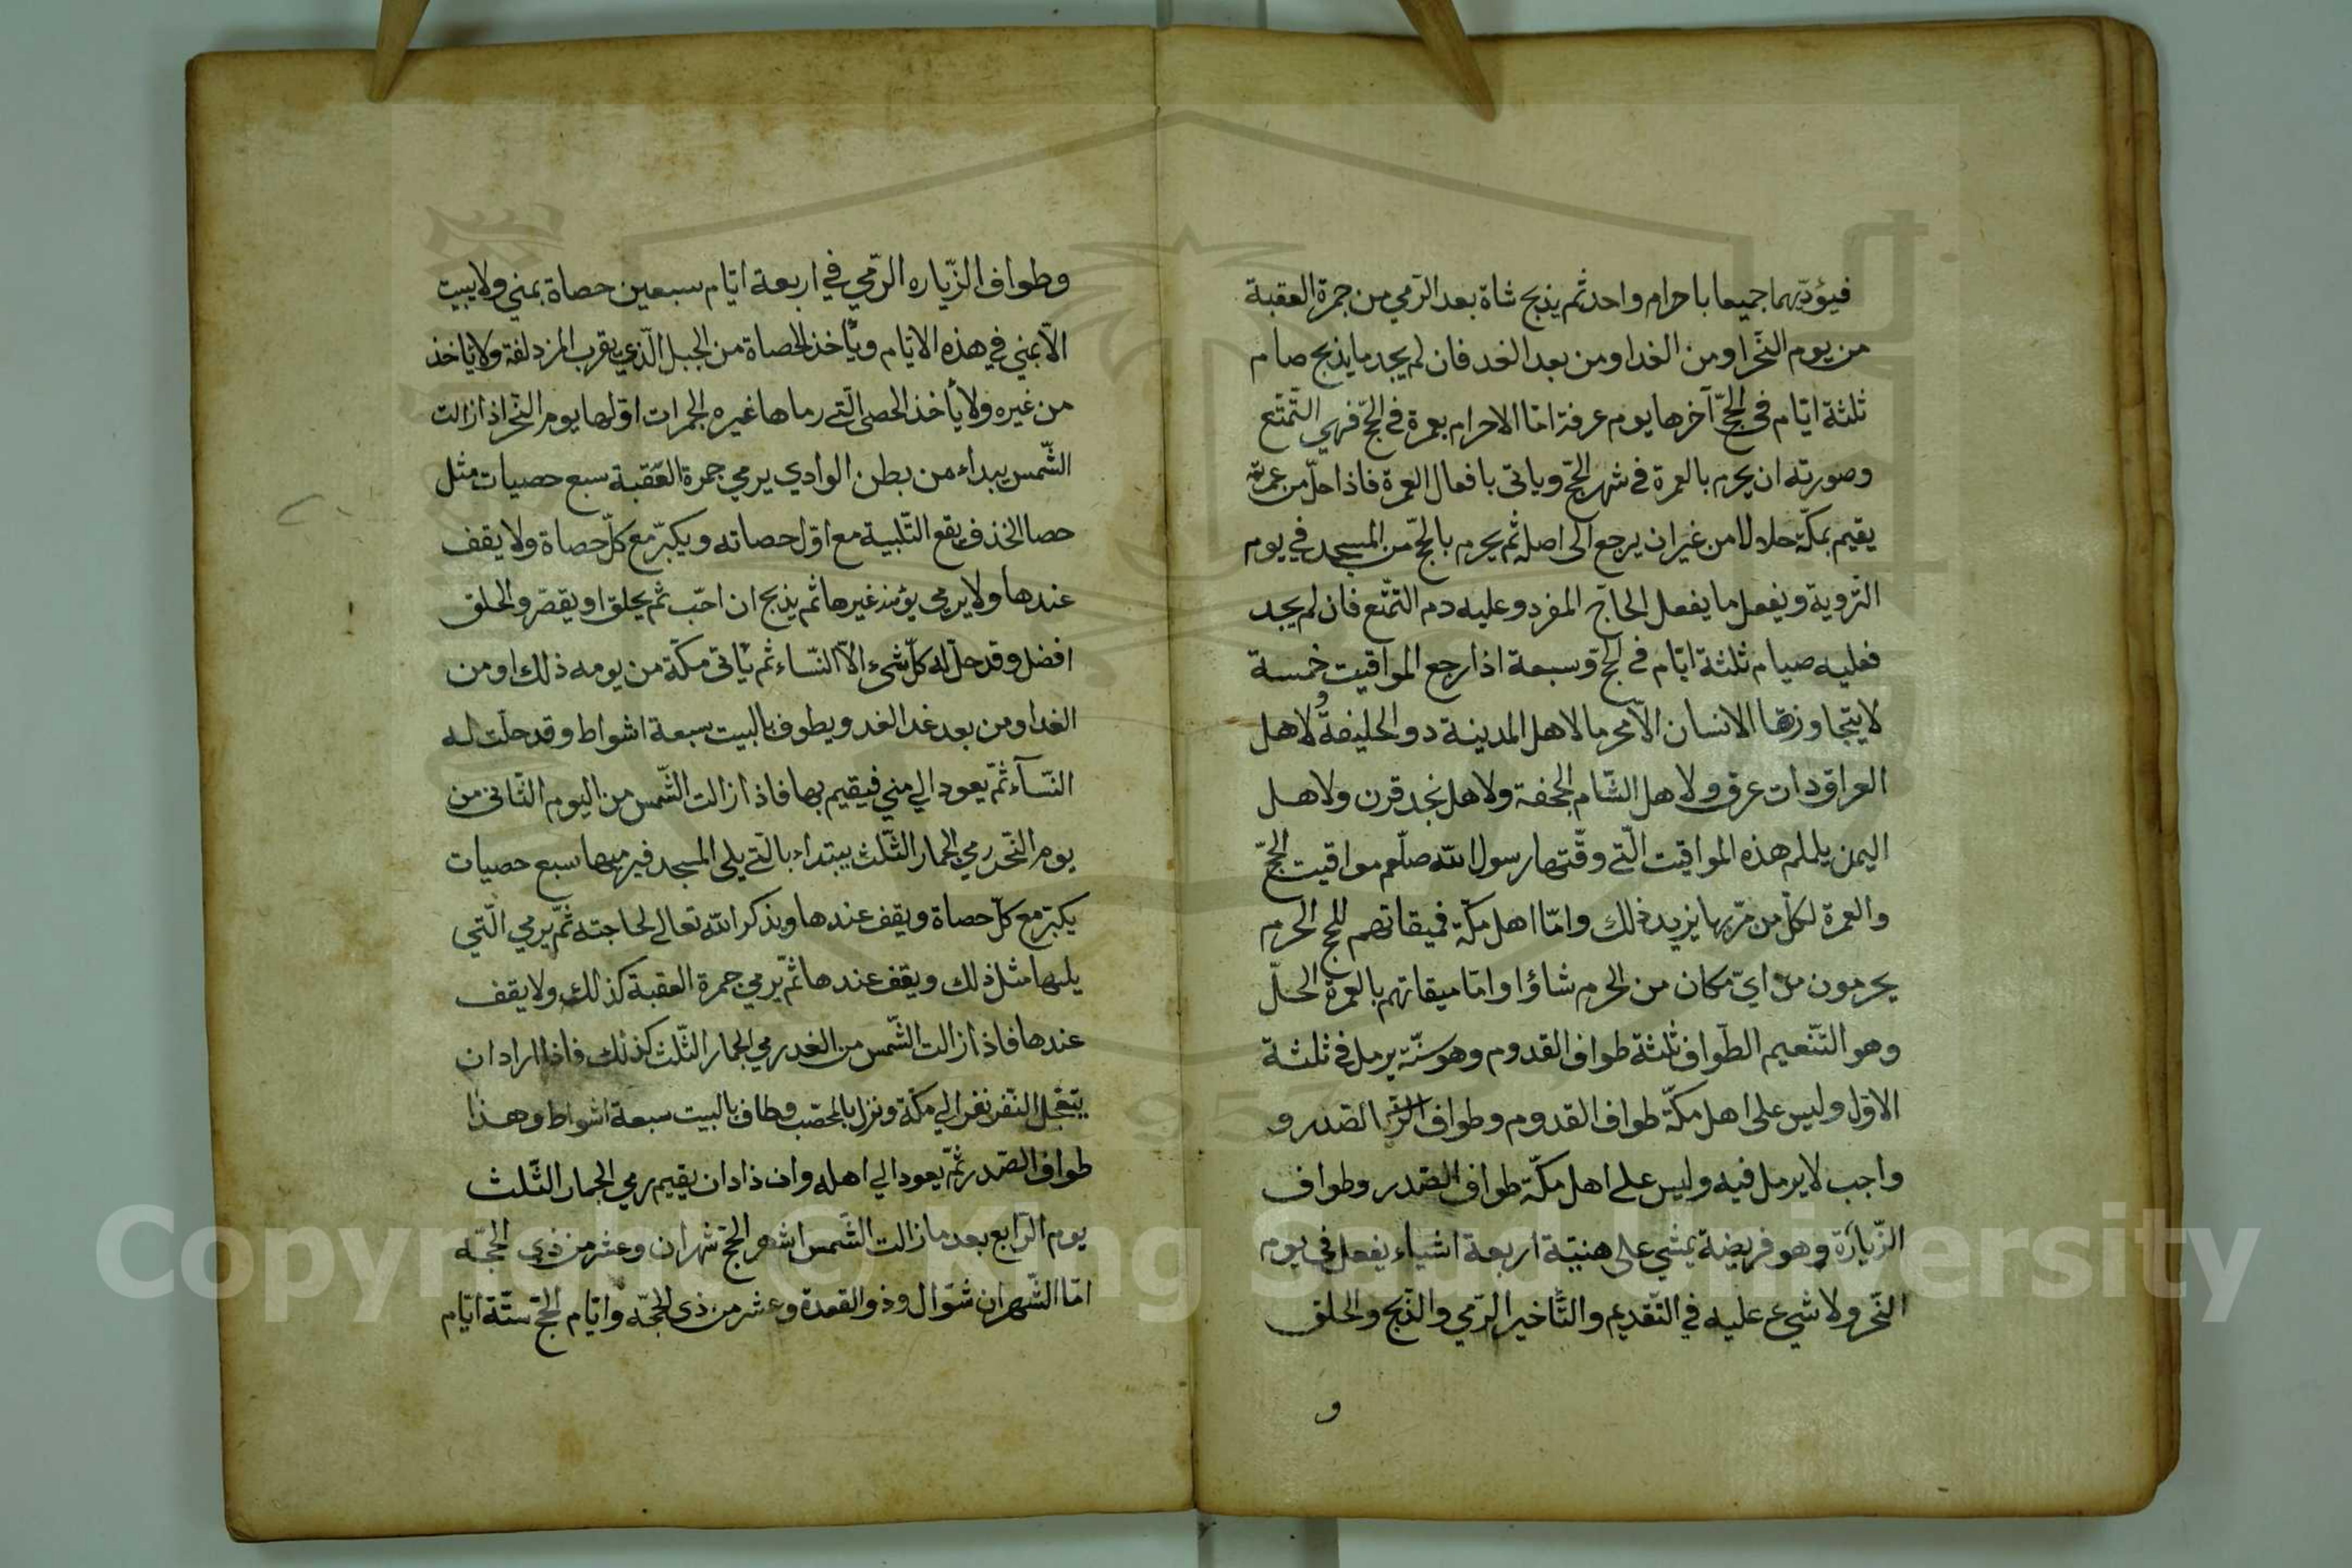 فيؤديهما جميعا باحرام واحد ثم يذبح شاة بعد الرمي من جمرة العقبة
من يوم النّحر او من الغد او من بعد الغد فان لم يجد ما يذبح صام
ثلثة ايّام في الحجّ آخرها يوم عرفة امّا الاحرام بعمرة في الحجّ فهي التّمتّع
وصورته ان يحرم بالعمرة في شهر الحجّ وياتي بافعال العمرة فاذا حلّ من عمرته
يقيم بمكّة حلالا من غير ان يرجع الى اصله ثم يحرم بالحجّ من المسجد في يوم
التّروية ويفعل ما يفعل الحاجّ المفرد وعليه دم التّمتّع فان لم يجد
فعليه صيام ثلثة ايّام في الحجّ وسبعة اذا رجع المواقيت خمسة
لا يتجاوزها الانسان الّا محرما لاهل المدينة دو الحليفة ولاهل
العراق دات عرق ولاهل الشّام الجحفة ولاهل نجد قرن ولاهل
اليمن يلملم هذه المواقيت الّتي وقّتها رسول الله صلّعم مواقيت الحجّ
والعمرة لكلّ من مرّ بها يزيد ذلك وامّا اهل مكّة فميقاتهم للحج الحرم
يحرمون من ايّ مكان من الحرم شاؤا وامّا ميقاتهم بالعمرة الحلّ
وهو التّنعيم الطّواف ثلثة طواف القدوم وهو سنّة يرمل في ثلثة
الاوّل وليس على اهل مكّة طواف القدوم وطواف الصّدر و
واجب لا يرمل فيه وليس على اهل مكّة طواف الصّدر وطواف
الزّيارة وهو فريضة يمشي على هنيّة اربعة اشياء يفعل في يوم
النّحر ولا شيء عليه في التّقديم والتّاخير الرّمي والذّبح والحلق
و
وطواف الزّياره الرّمي في اربعة ايّام سبعين حصاة بمني ولا يبيت
الّا بمني في هذه الايّام ويأخذ الحصاة من الجبل الّذي يقرب المزدلفة ولا ياخذ
من غيره ولا يأخذ الحصى الّتي رماها غيره الجمرات اوّلها يوم النّحر اذا زالت
الشّمس يبداء من بطن الوادي يرمي جمرة العقبة سبع حصيات مثل
حصا الخذف يقع التّلبية مع اوّل حصاته ويكبّر مع كلّ حصاة ولا يقف
عندها ولا يرمي يؤمئذ غيرها ثم يذبح ان احبّ ثم يحلق او يقصّر والحلق
افضل وقد حلّ له كلّ شيء الّا النّساء ثم يأتي مكّة من يومه ذلك او من
الغد او من بعد غد الغد ويطوف بالبيت سبعة اشواط وقد حلّت له
النّسآء ثمّ يعود الي مني فيقيم بها فاذا زالت الشّمس من اليوم الثّاني من
يوم النّحر رمي الجمار الثّلث يبتداء بالّتي يلي المسجد فيرميها سبع حصيات
يكبّر مع كلّ حصاة ويقف عندها ويذكر الله تعالى لحاجته ثمّ يرمي الّتي
يليها مثل ذلك ويقف عندها ثمّ يرمي جمرة العقبة كذلك ولا يقف
عندها فاذا زالت الشّمس من الغد رمي الجمار الثّلث كذلك فاذا اراد ان
يتعجّل النّفر نفر الي مكّة ونزل بالمحصّب وطاف بالبيت سبعة اشواط وهذا
طواف الصّدر ثمّ يعود الي اهله وان ذاد ان يقيم رمي الجمار الثّلث
يوم الرّابع بعد ما زالت الشّمس اشهر الحجّ شهران وعشر من ذي الحجّه
امّا الشّهران شوّال وذو القعدة وعشر من ذي الحجّه وايّام الحجّ ستّة ايّام
Copyright © King Saud University